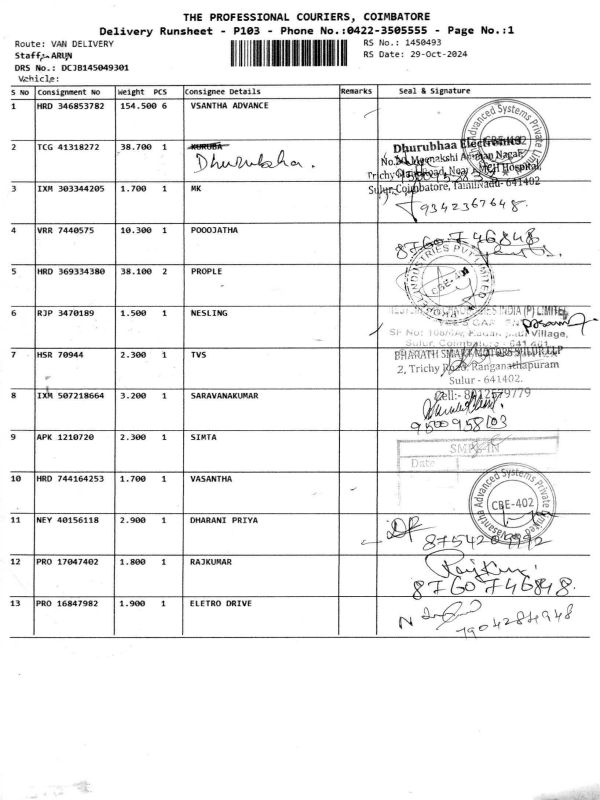 THE PROFESSIONAL COURIERS, COIMBATORE
Delivery Runsheet - P103 - Phone No.:0422-3505555 - Page No.:1
Route: VAN DELIVERY RS No.: 1450493
Staff:-ARUN RS Date: 29-Oct-2024
DRS No.: DCJB145049301
Vehicle:
S No Consignment No Weight PCS Consignee Details Remarks Seal & Signature
1 HRD 346853782 154.500 6 VSANTHA ADVANCE
2 TCG 41318272 38.700 1 KURUBA
Dhurubha. Dhurubhaa Electronics
Sulur, Coimbatore, TamilNadu- 641402
3 IXM 303344205 1.700 1 MK
9342367648.
4 VRR 7440575 10.300 1 POOOJATHA
8760746848
5 HRD 369334380 38.100 2 PROPLE
6 RJP 3470189 1.500 1 NESLING
7 HSR 70944 2.300 1 TVS
2, Trichy Road, Ranganathapuram
Sulur - 641402.
8 IXM 507218664 3.200 1 SARAVANAKUMAR
9500958103
9 APK 1210720 2.300 1 SIMTA
Date
10 HRD 744164253 1.700 1 VASANTHA
Vasantha Advanced Systems Private
CBE-402
11 NEY 40156118 2.900 1 DHARANI PRIYA
12 PRO 17047402 1.800 1 RAJKUMAR
Rajkumar
8760746848.
13 PRO 16847982 1.900 1 ELETRO DRIVE
7904284948